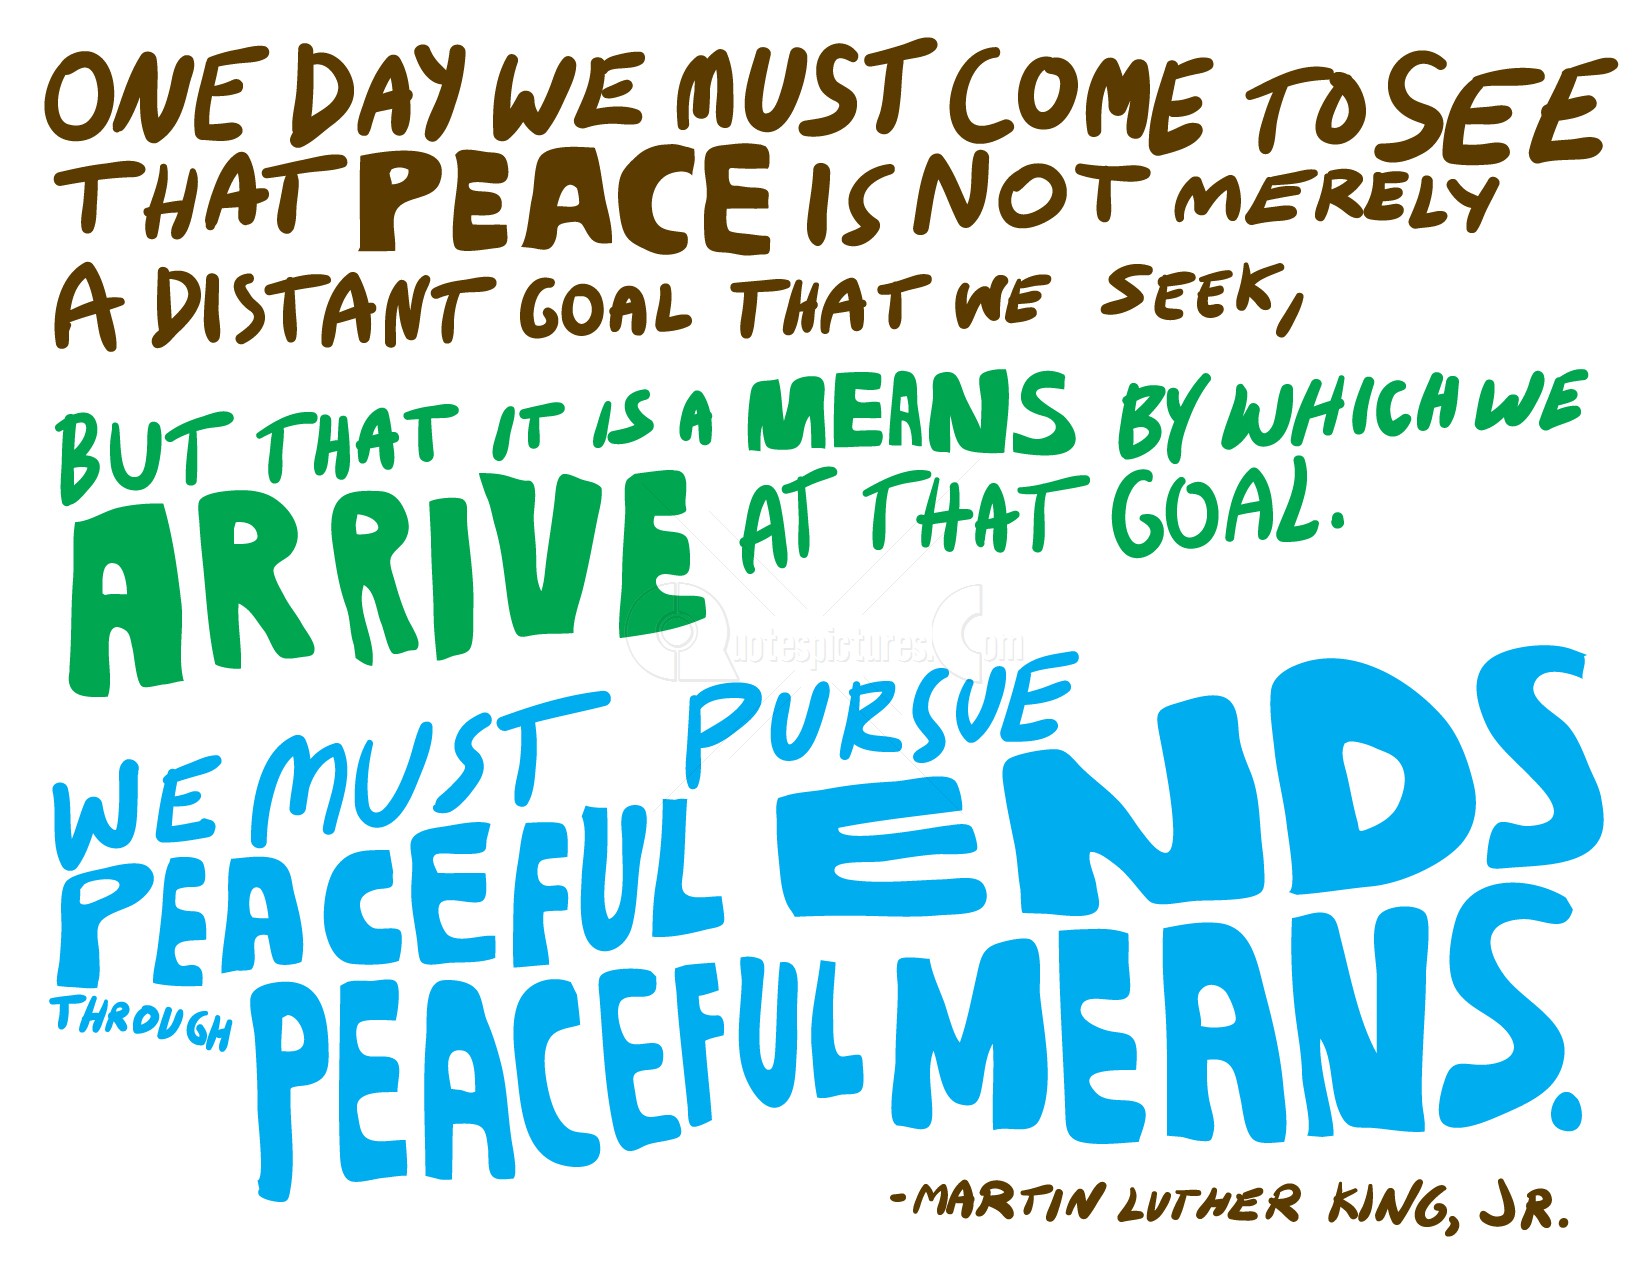 ONE DAY WE MUST COME TO SEE
THAT PEACE IS NOT MERELY
A DISTANT GOAL THAT WE SEEK,
BUT THAT IT IS A MEANS BY WHICH WE
ARRIVE AT THAT GOAL.
Quotespictures.Com
WE MUST PURSUE
PEACEFUL ENDS
THROUGH PEACEFUL MEANS.
-MARTIN LUTHER KING, JR.